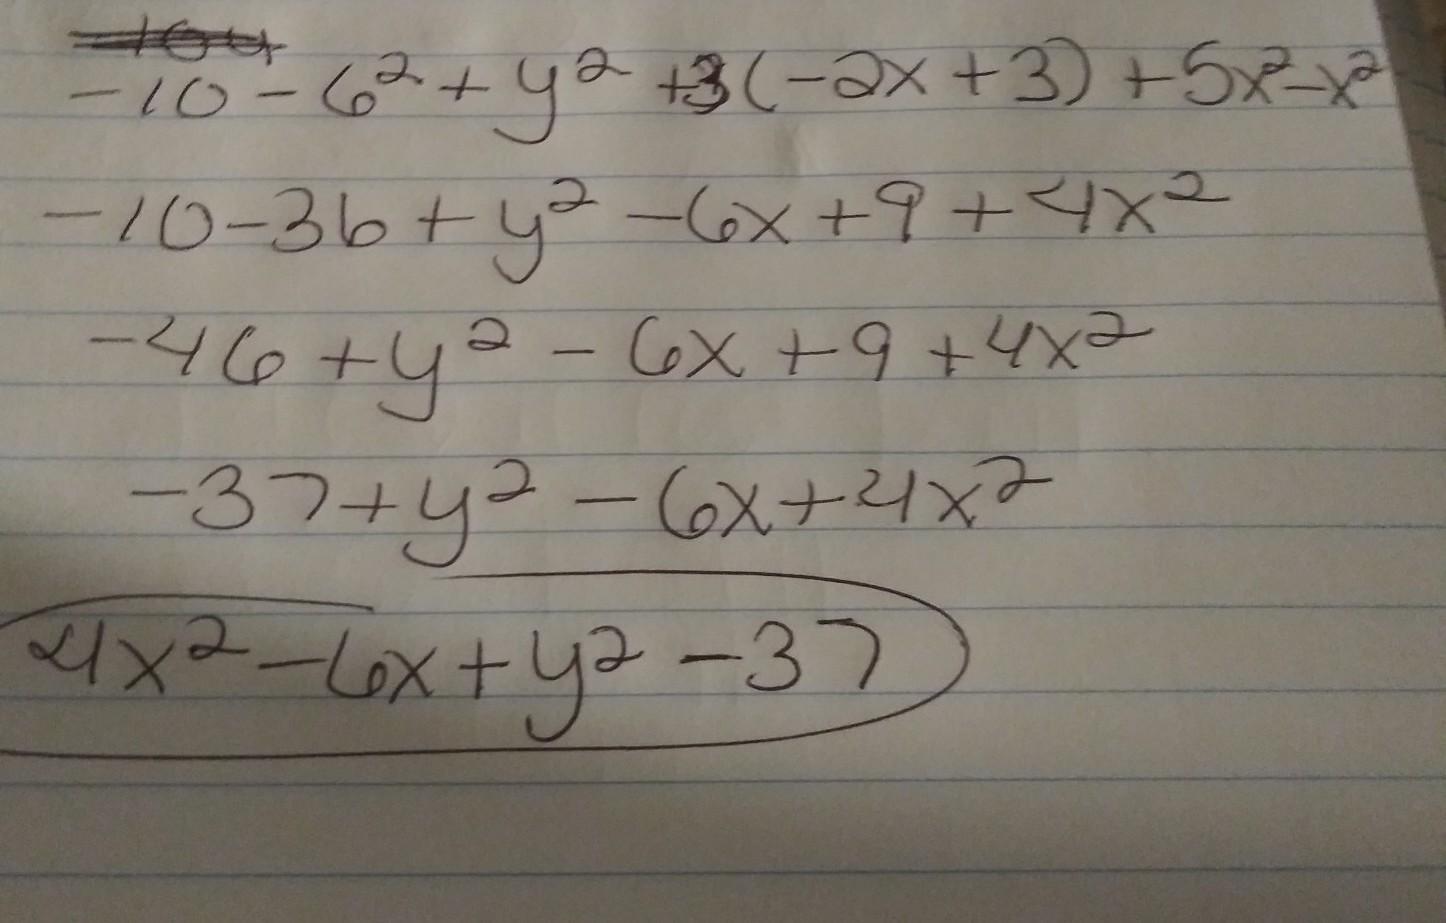 -10-6²+y²+3(-2x+3)+5x²-x²
-10-36+y²-6x+9+4x²
-46+y²-6x+9+4x²
-37+y²-6x+4x²
4x²-6x+y²-37